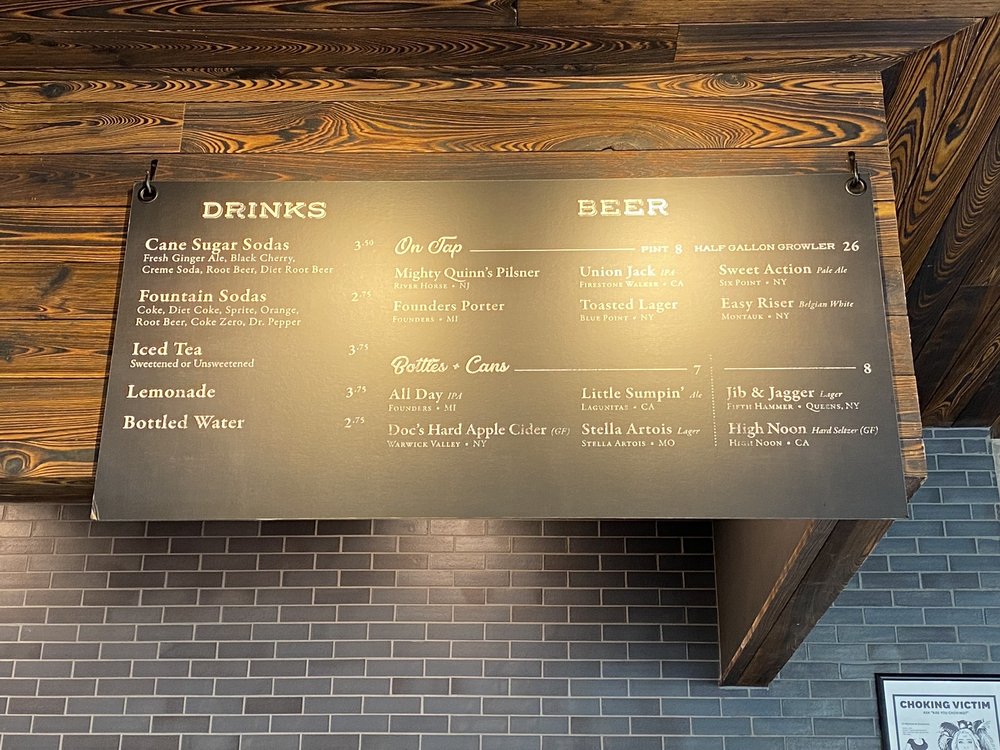 DRINKS
Cane Sugar Sodas 3.50
Fresh Ginger Ale, Black Cherry,
Creme Soda, Root Beer, Diet Root Beer
Fountain Sodas 2.75
Coke, Diet Coke, Sprite, Orange,
Root Beer, Coke Zero, Dr. Pepper
Iced Tea 3.75
Sweetened or Unsweetened
Lemonade 3.75
Bottled Water 2.75
BEER
On Tap PINT 8 HALF GALLON GROWLER 26
Mighty Quinn's Pilsner
RIVER HORSE • NJ
Union Jack IPA
FIRESTONE WALKER • CA
Sweet Action Pale Ale
SIX POINT • NY
Founders Porter
FOUNDERS • MI
Toasted Lager
BLUE POINT • NY
Easy Riser Belgian White
MONTAUK • NY
Bottles + Cans 7 8
All Day IPA
FOUNDERS • MI
Little Sumpin' Ale
LAGUNITAS • CA
Jib & Jagger Lager
FIFTH HAMMER • QUEENS, NY
Doc's Hard Apple Cider (GF)
WARWICK VALLEY • NY
Stella Artois Lager
STELLA ARTOIS • MO
High Noon Hard Seltzer (GF)
HIGH NOON • CA
CHOKING VICTIM
ASK "ARE YOU CHOKING?"